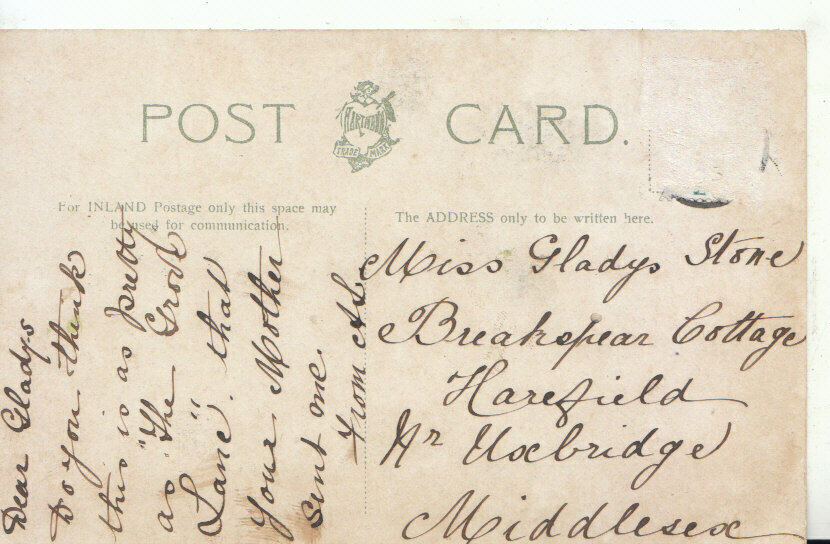 POST CARD.
HARTMANN
TRADE MARK
For INLAND Postage only this space may
be used for communication.
The ADDRESS only to be written here.
Dear Gladys
Do you think
this is as pretty
as "The Grove
Lane". that
your Mother
sent me.
From
Miss Gladys Stone
Breakspear Cottage
Harefield
Nr Uxbridge
Middlesex